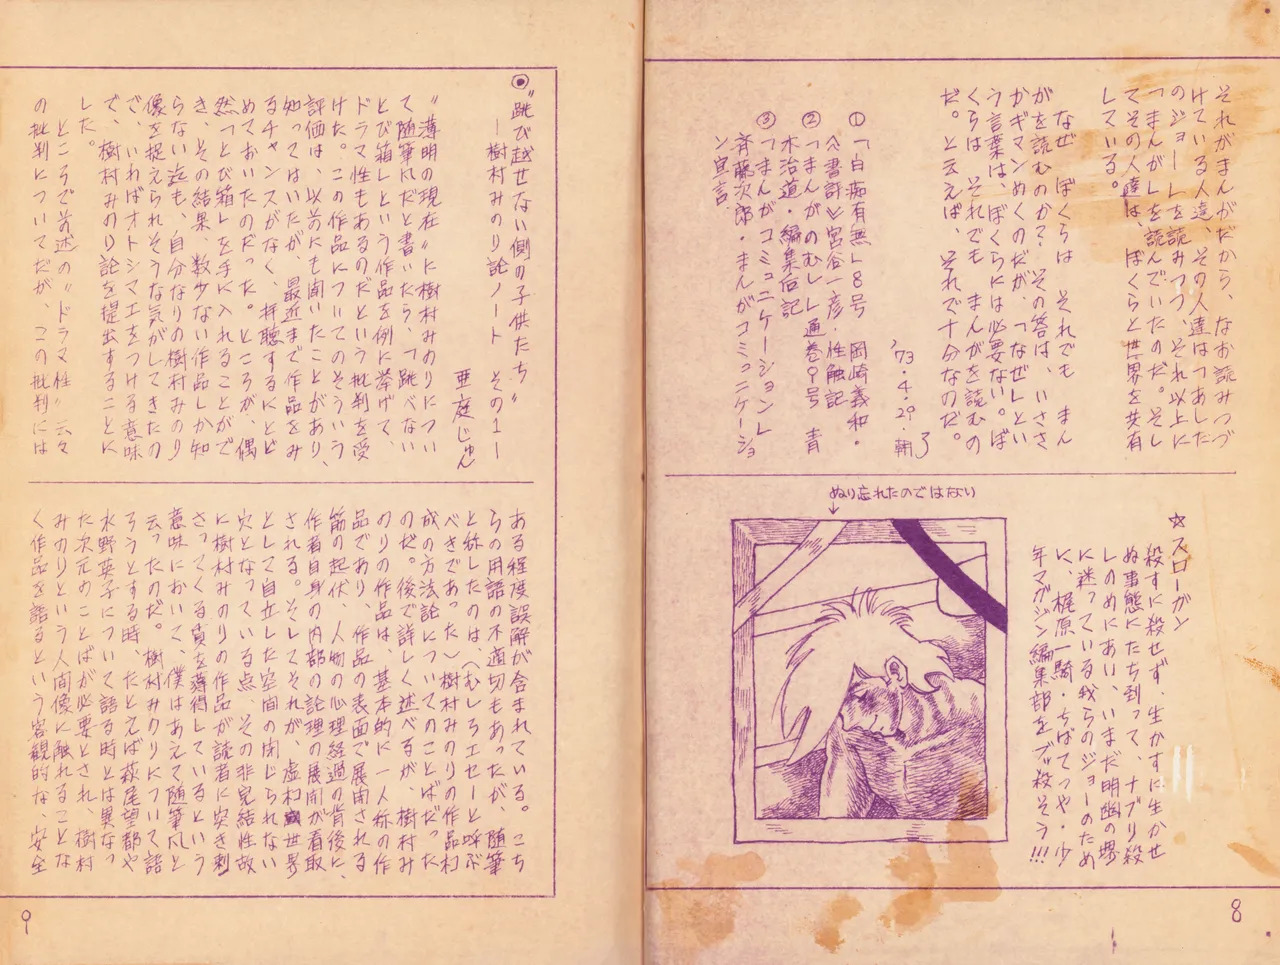 それがまんがだから、なお読みつづ
けている人達、その人達はつあした
のジョー」を読みつつ、それ以上に
つまんが」を読んでいたのだ。そし
てその人達は、ぼくらと世界を共有
している。
なぜ　ぼくらは　それでも　まん
がを読むのか？　その答は、いささ
かギマンめくのだが、「なぜ」とい
う言葉は、ぼくらには必要ない。ぼ
くらは　それでも　まんがを読むの
だ。と云えば、それで十分なのだ。
了
'73・4・29・朝
①「白痴有無」8号　岡崎義和・
《書評》宮谷一彦・性触記
②つまんがのむし」通巻9号　青
木治道・編集后記
③つまんがコミュニケーション」
斉藤次郎・まんがコミュニケーショ
ン宣言
☆スローガン
殺すに殺せず、生かすに生かせ
ぬ事態にたち到って、ナブリ殺
しのめにあい、いまだ明幽の堺
に迷っている我らのジョーのため
に、梶原一騎・ちばてつや・少
年マガジン編集部をブッ殺そう!!!
ぬり忘れたのではない
8
◉〝跳び越せない側の子供たち〟
―樹村みのり論ノート　その1―
亜庭じゅん
〝薄明の現在〟に樹村みのりについ
て随筆風だと書いたら、「跳べない
とび箱」という作品を例に挙げて、
ドラマ性もあるのだという批判を受
けた。この作品についてのそういう
評価は、以前にも聞いたことがあり、
知ってはいたが、最近まで作品をみ
るチャンスがなく、拝聴するにとど
めておいたのだった。ところが、偶
然つとび箱」を手に入れることがで
き、その結果、数少ない作品しか知
らない迄も、自分なりの樹村みのり
像を捉えられそうな気がしてきたの
で、いわばオトシマエをつける意味
で、樹村みのり論を提出することに
した。
ところで前述の〝ドラマ性〟云々
の批判についてだが、この批判には
ある程度誤解が含まれている。こち
らの用語の不適切もあったが、随筆
と称したのは、（むしろエセーと呼ぶ
べきであった）樹村みのりの作品構
成の方法論についてのことばだった
のだ。後で詳しく述べるが、樹村み
のりの作品は、基本的に一人称の作
品であり、作品の表面で展開される
筋の起伏、人物の心理経過の背後に、
作者自身の内部の論理の展開が看取
される。そしてそれが、虚構世界
として自立した空間の閉じられない
穴となっている点、その非完結性故
に樹村みのりの作品が読者に突き刺
さってくる質を獲得しているという
意味において、僕はあえて随筆風と
云ったのだ。樹村みのりについて語
ろうとする時、たとえば萩尾望都や
水野英子について語る時とは異なっ
た次元のことばが必要とされ、樹村
みのりという人間像に触れることな
く作品を語るという客観的な、安全
9